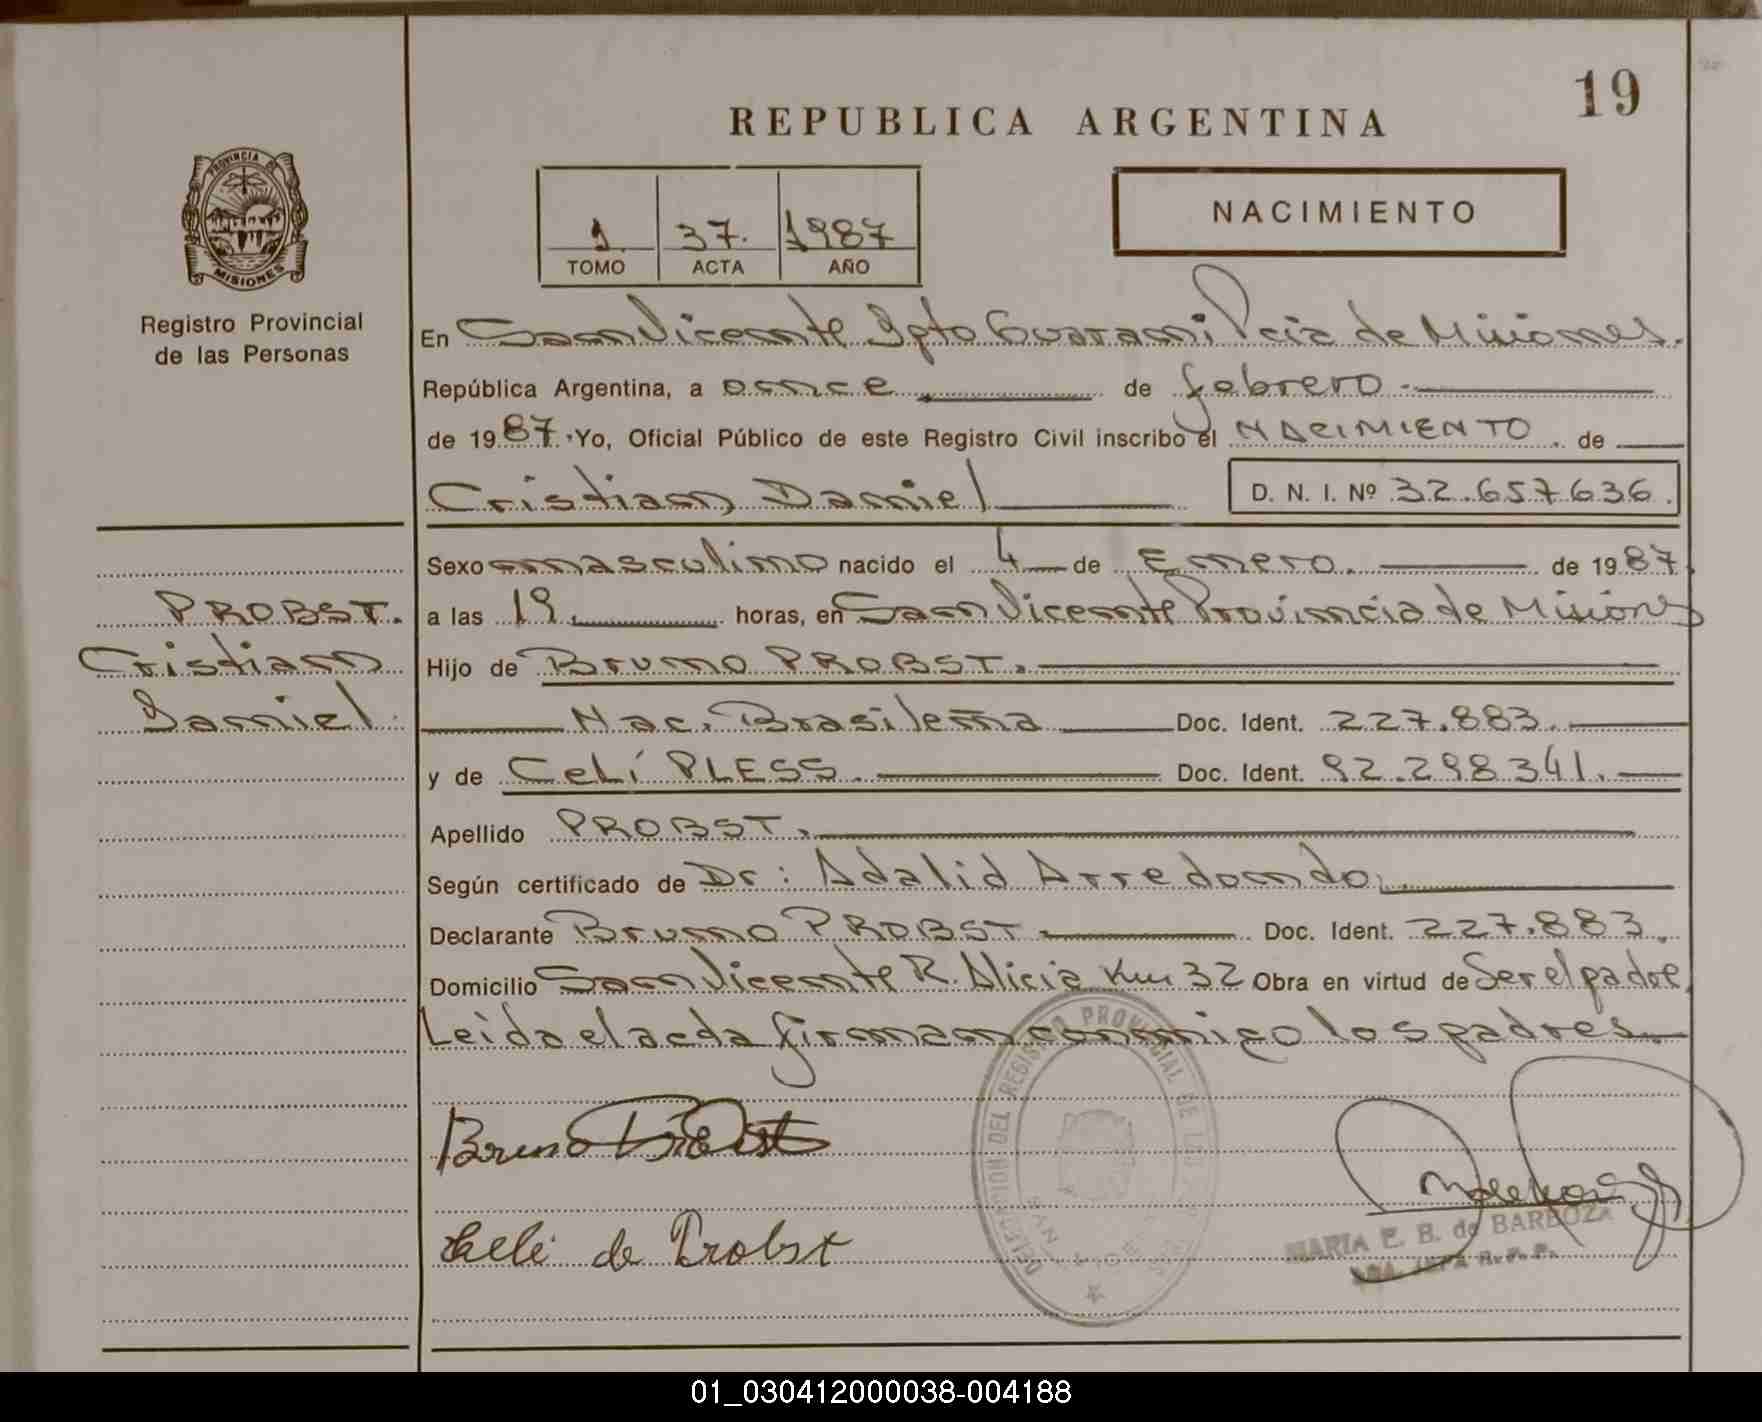 19
REPUBLICA ARGENTINA
PROVINCIA DE
MISIONES
Registro Provincial
de las Personas
1. 37. 1987
TOMO ACTA AÑO
NACIMIENTO
En San Vicente Dpto Guarani Pcia de Misiones.
República Argentina, a once de febrero.
de 1987. Yo, Oficial Público de este Registro Civil inscribo el NACIMIENTO. de
Cristian Daniel D. N. I. Nº 32.657636.
Sexo masculino nacido el 4 de Enero. de 1987.
PROBST.
Cristian
Daniel
a las 19. horas, en San Vicente Provincia de Misiones
Hijo de Bruno PROBST.
Nac. Brasileña Doc. Ident. 227.883.
y de Celí PLESS. Doc. Ident. 92.298341.
Apellido PROBST.
Según certificado de Dr: Adalid Arredondo.
Declarante Bruno PROBST. Doc. Ident. 227.883.
Domicilio San Vicente R. Alicia Km 32 Obra en virtud de Ser el padre.
Leida el acta firman conmigo los padres.
Bruno Probst
Celi de Probst
DELEGACION DEL REGISTRO PROVINCIAL DE LAS
SAN VICENTE
MARIA E. B. de BARBOZA
JEFA R.P.P.
01_030412000038-004188